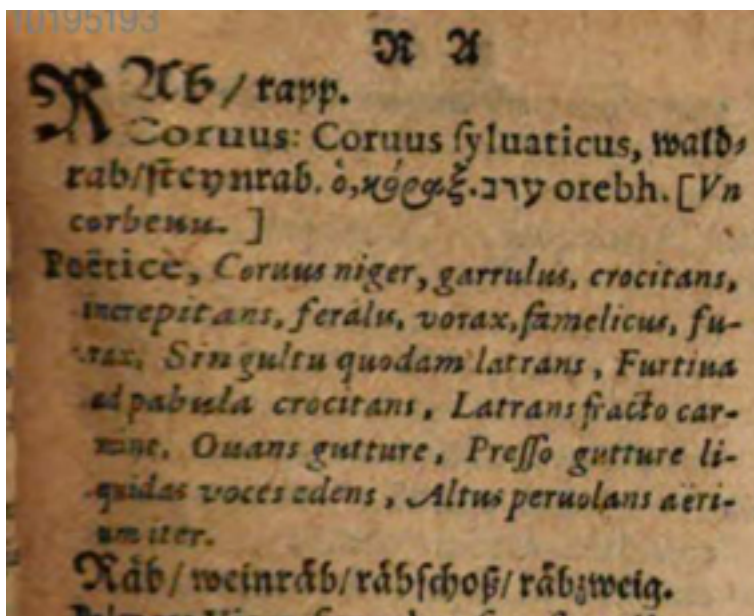 10195193
R A
RAb / rapp.
Coruus: Coruus ſyluaticus, wald⸗
rab/ſteynrab. ὁ, κόραξ. ערב orebh. [Vn
corbenu. ]
Poëtice, Coruus niger, garrulus, crocitans,
increpitans, feralis, vorax, famelicus, fu-
rax, Singultu quodam latrans, Furtiua
ad pabula crocitans, Latrans fracto car-
mine, Ouans gutture, Preſſo gutture li-
quidas voces edens, Altus peruolans aëri-
um iter.
Räb / weinräb/ räbſchoß/ räbzweig.